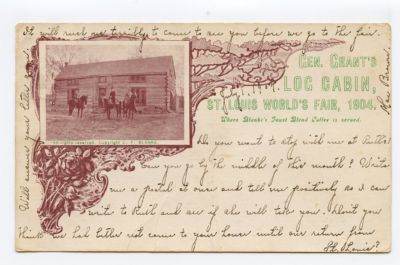 It will rush me terribly to come to see you before we go to the fair.
GEN. GRANT'S
LOG CABIN,
ST. LOUIS WORLD'S FAIR, 1904.
Where Blanke's Faust Blend Coffee is served.
All rights reserved. Copyright C. F. BLANKE.
Do you want to stop with me at Ruth's?
Can you go by the middle of this month? Write
me a postal at once and tell me positively so I can
write to Ruth and see if she will take you. Don't you
think we had better not come to your house until our return from
St. Louis?
Will answer your letter soon.